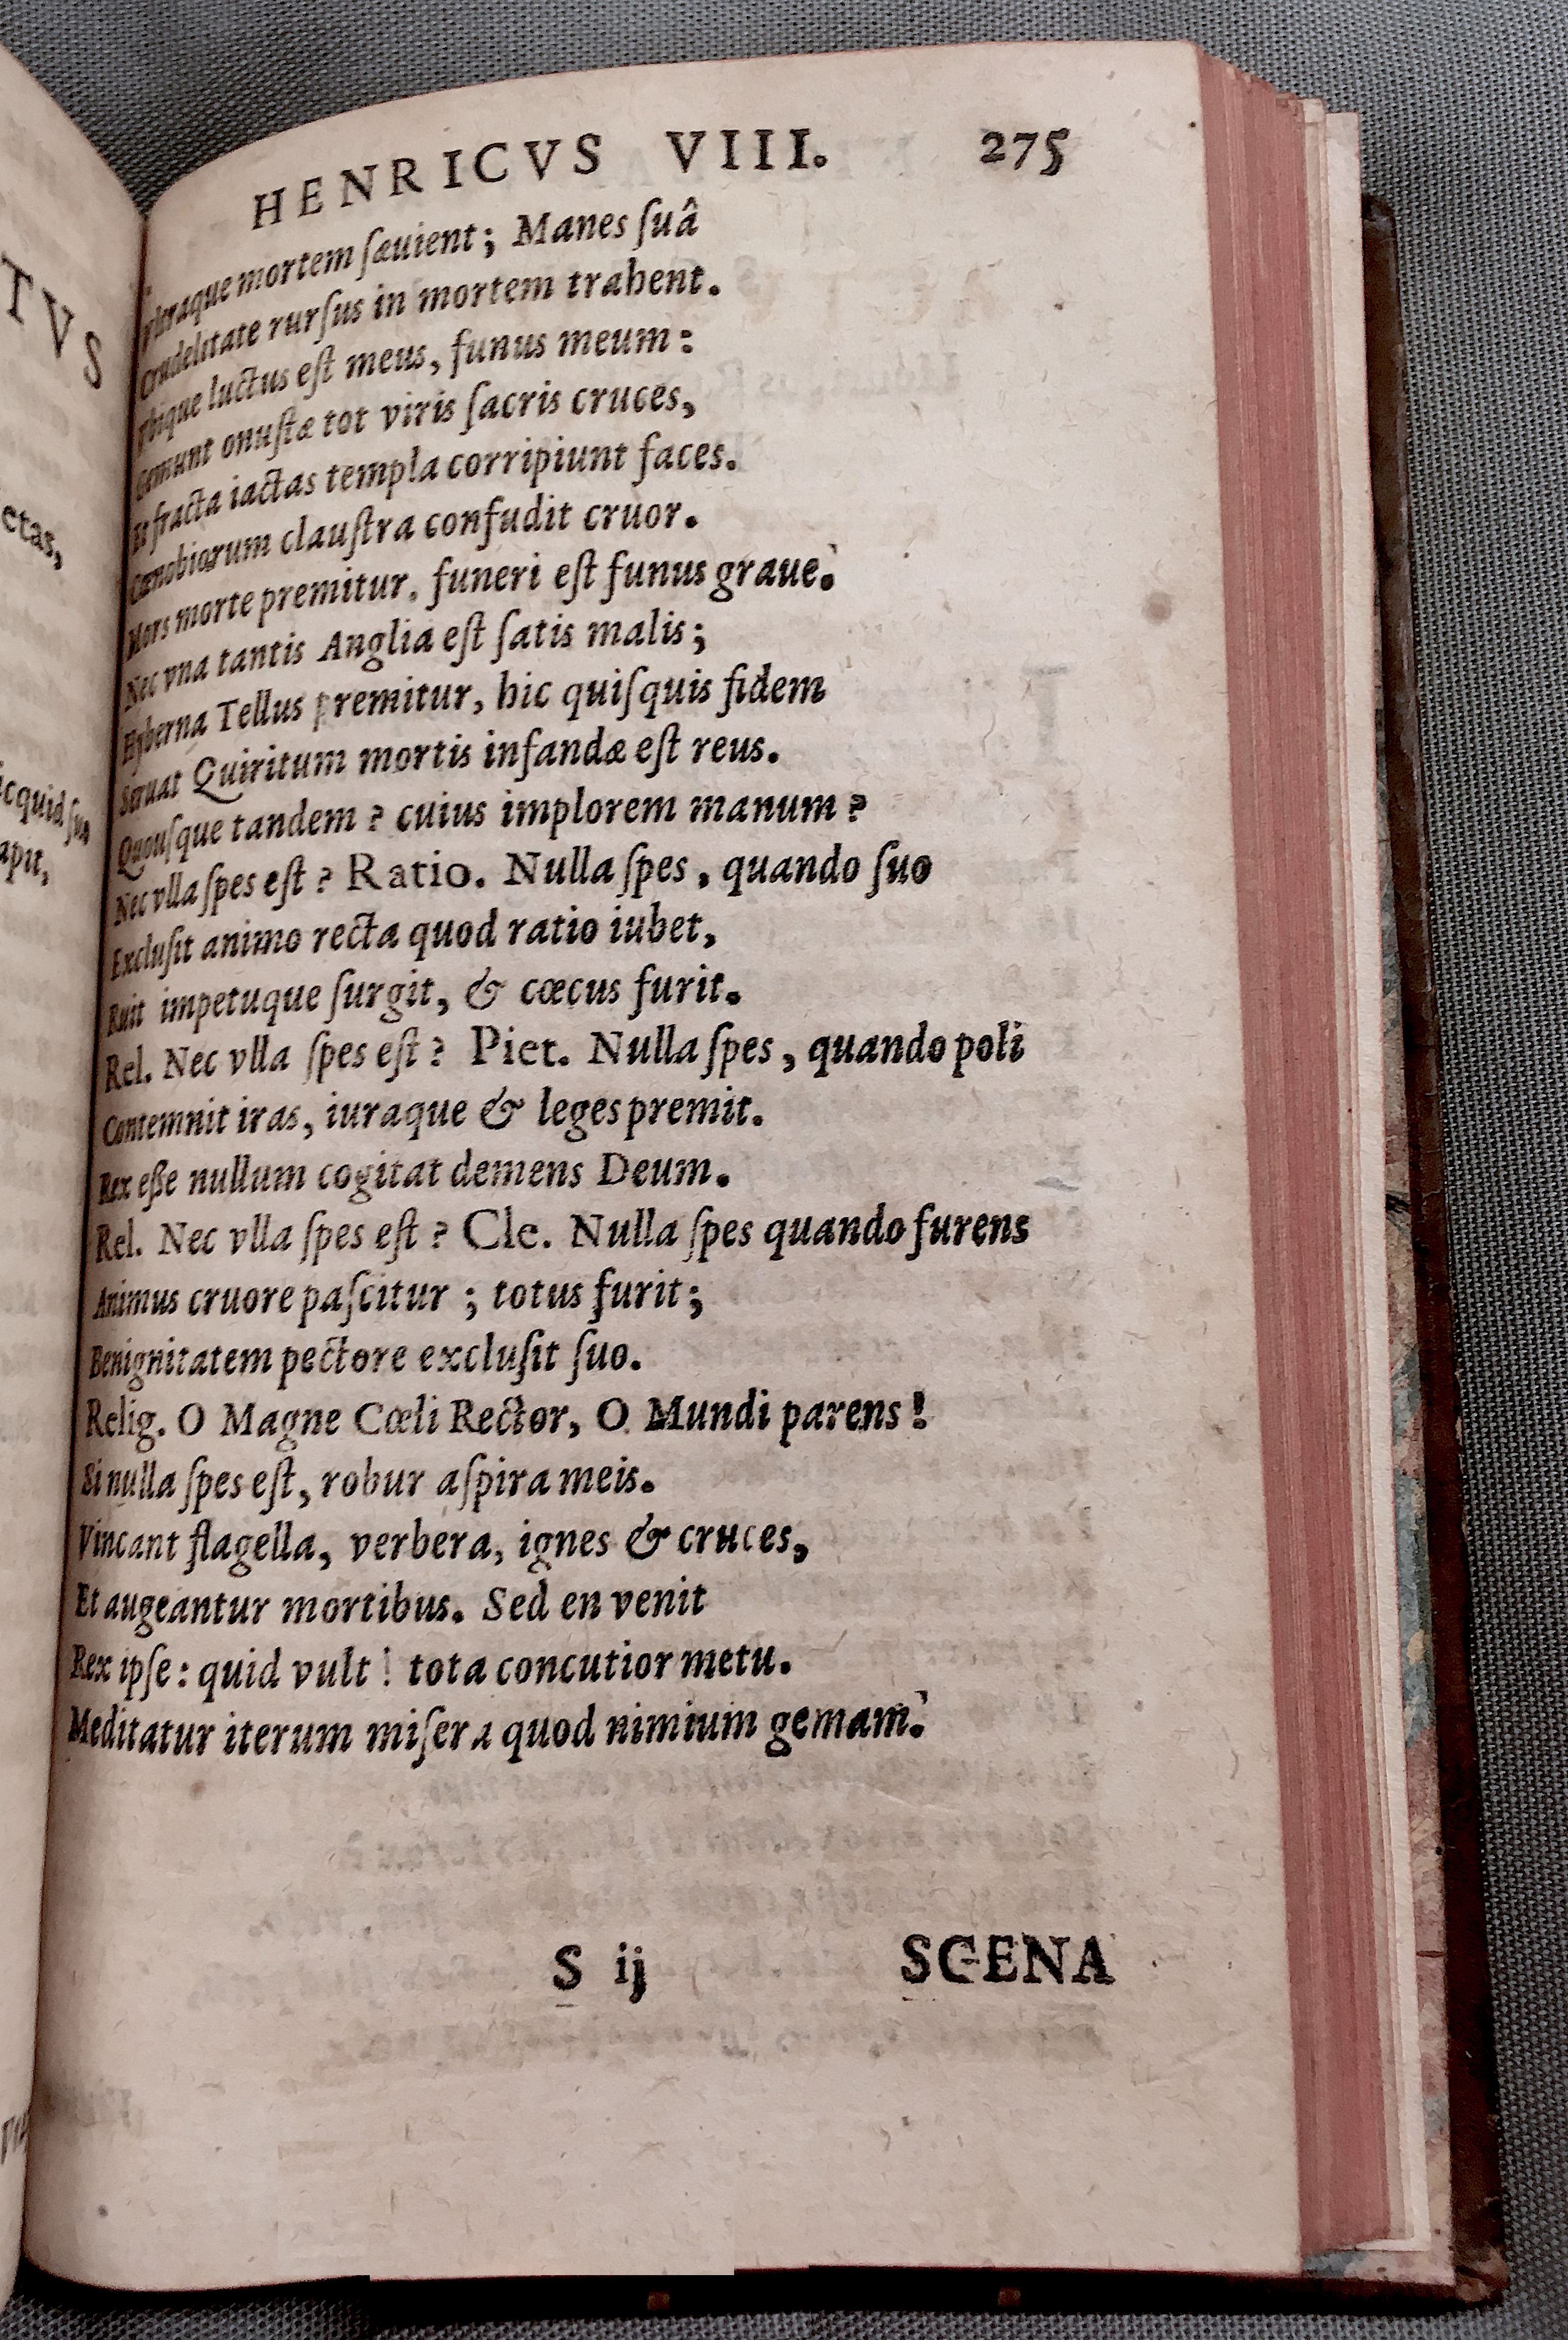 TVS
etas,
apit,
HENRICVS VIII. 275
Vltraque mortem ſæuient; Manes ſuâ
Crudelitate rurſus in mortem trahent.
Vbique luctus eſt meus, funus meum:
Gemunt onuſtæ tot viris ſacris cruces,
Et fracta iactas templa corripiunt faces.
Cœnobiorum clauſtra confudit cruor.
Mors morte premitur, funeri eſt funus graue.
Nec vna tantis Anglia eſt ſatis malis;
Hyberna Tellus premitur, hic quiſquis fidem
Seruat Quiritum mortis infandæ eſt reus.
Quouſque tandem? cuius implorem manum?
Nec vlla ſpes eſt? Ratio. Nulla ſpes, quando ſuo
Excluſit animo recta quod ratio iubet,
Ruit impetuque ſurgit, & cœcus furit.
Rel. Nec vlla ſpes eſt? Piet. Nulla ſpes, quando poli
Contemnit iras, iuraque & leges premit.
Rex eſſe nullum cogitat demens Deum.
Rel. Nec vlla ſpes eſt? Cle. Nulla ſpes quando furens
Animus cruore paſcitur; totus furit;
Benignitatem pectore excluſit ſuo.
Relig. O Magne Cœli Rector, O Mundi parens!
Si nulla ſpes eſt, robur aſpira meis.
Vincant flagella, verbera, ignes & cruces,
Et augeantur mortibus. Sed en venit
Rex ipſe: quid vult! tota concutior metu.
Meditatur iterum miſera quod nimium gemam.
S ij SCENA